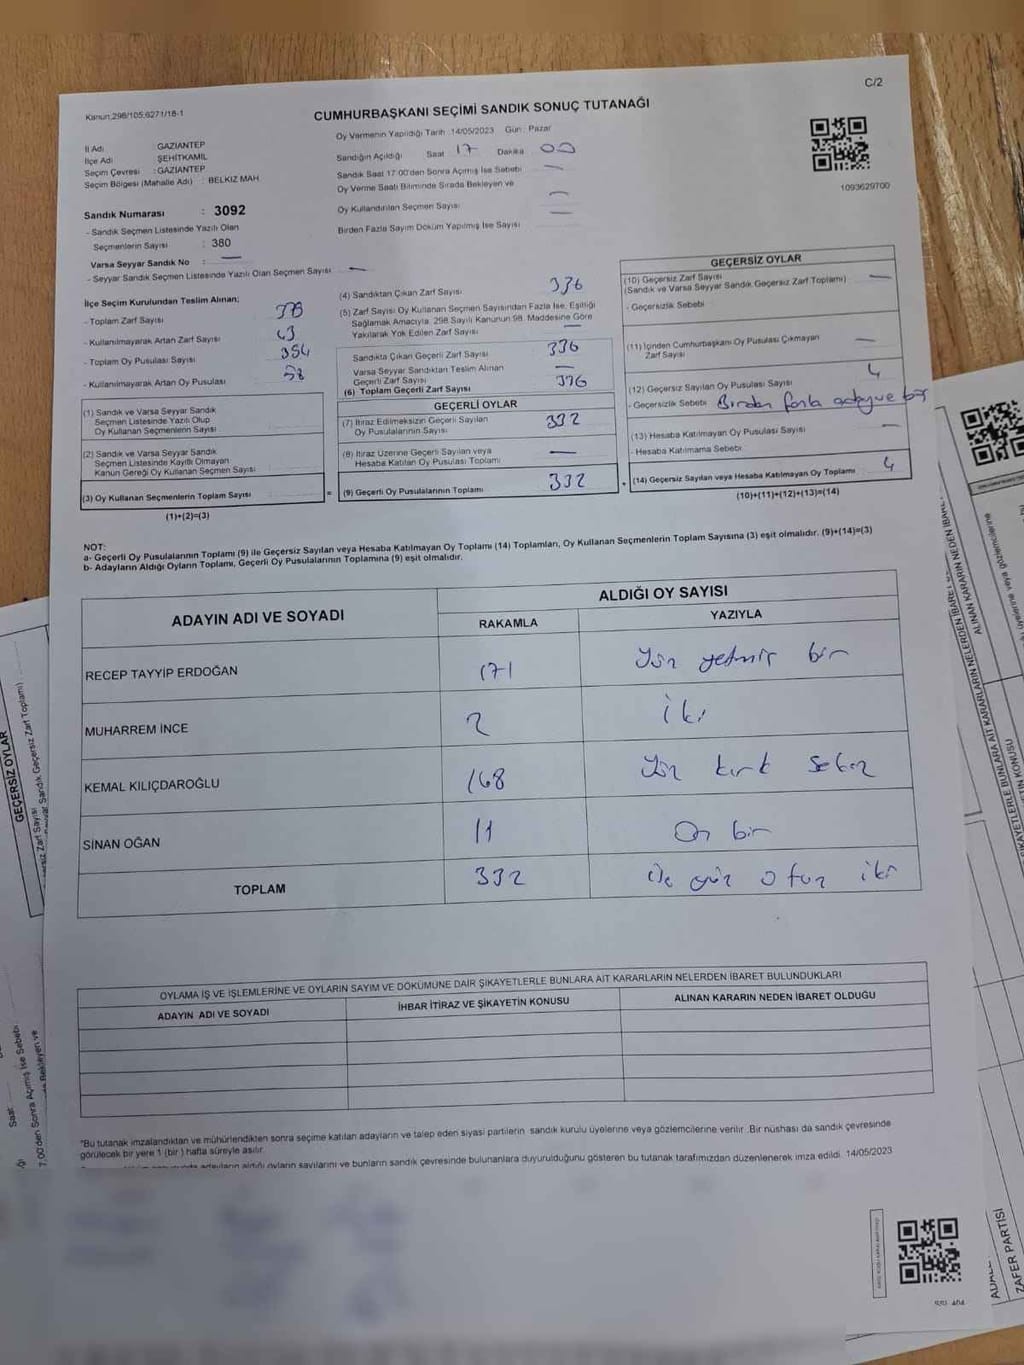 C/2
Kanun,298/105;6271/18-1
CUMHURBAŞKANI SEÇİMİ SANDIK SONUÇ TUTANAĞI
İl Adı GAZİANTEP
İlçe Adı ŞEHİTKAMİL
Seçim Çevresi : GAZİANTEP
Seçim Bölgesi (Mahalle Adı) : BELKIZ MAH.
Oy Vermenin Yapıldığı Tarih :14/05/2023 Gün : Pazar
Sandığın Açıldığı Saat 17 Dakika 00
Sandık Saat 17:00'den Sonra Açımış İse Sebebi —
Oy Verme Saati Bitiminde Sırada Bekleyen ve
Oy Kullandırılan Seçmen Sayısı —
Birden Fazla Sayım Döküm Yapılmış İse Sayısı —
1093629700
Sandık Numarası : 3092
- Sandık Seçmen Listesinde Yazılı Olan
Seçmenlerin Sayısı : 380
Varsa Seyyar Sandık No : —
- Seyyar Sandık Seçmen Listesinde Yazılı Olan Seçmen Sayısı —
İlçe Seçim Kurulundan Teslim Alınan;
- Toplam Zarf Sayısı 378
- Kullanılmayarak Artan Zarf Sayısı 43
- Toplam Oy Pusulası Sayısı 354
- Kullanılmayarak Artan Oy Pusulası 58
(1) Sandık ve Varsa Seyyar Sandık
Seçmen Listesinde Yazılı Olup
Oy Kullanan Seçmenlerin Sayısı
(2) Sandık ve Varsa Seyyar Sandık
Seçmen Listesinde Kayıtlı Olmayan
Kanun Gereği Oy Kullanan Seçmen Sayısı
(3) Oy Kullanan Seçmenlerin Toplam Sayısı
(1)+(2)=(3)
(4) Sandıktan Çıkan Zarf Sayısı 336
(5) Zarf Sayısı Oy Kullanan Seçmen Sayısından Fazla İse, Eşitliği
Sağlamak Amacıyla, 298 Sayılı Kanunun 98. Maddesine Göre
Yakılarak Yok Edilen Zarf Sayısı —
Sandıkta Çıkan Geçerli Zarf Sayısı 336
Varsa Seyyar Sandıktan Teslim Alınan
Geçerli Zarf Sayısı —
(6) Toplam Geçerli Zarf Sayısı 336
GEÇERLİ OYLAR
(7) İtiraz Edilmeksizin Geçerli Sayılan
Oy Pusulalarının Sayısı 332
(8) İtiraz Üzerine Geçerli Sayılan veya
Hesaba Katılan Oy Pusulası Toplamı —
= (9) Geçerli Oy Pusulalarının Toplamı 332
GEÇERSİZ OYLAR
(10) Geçersiz Zarf Sayısı
(Sandık ve Varsa Seyyar Sandık Geçersiz Zarf Toplamı) —
- Geçersizlik Sebebi
(11) İçinden Cumhurbaşkanı Oy Pusulası Çıkmayan
Zarf Sayısı —
(12) Geçersiz Sayılan Oy Pusulası Sayısı 4
- Geçersizlik Sebebi Birden fazla
(13) Hesaba Katılmayan Oy Pusulası Sayısı —
- Hesaba Katılmama Sebebi
+ (14) Geçersiz Sayılan veya Hesaba Katılmayan Oy Toplamı 4
(10)+(11)+(12)+(13)=(14)
NOT:
a- Geçerli Oy Pusulalarının Toplamı (9) ile Geçersiz Sayılan veya Hesaba Katılmayan Oy Toplamı (14) Toplamları, Oy Kullanan Seçmenlerin Toplam Sayısına (3) eşit olmalıdır. (9)+(14)=(3)
b- Adayların Aldığı Oyların Toplamı, Geçerli Oy Pusulalarının Toplamına (9) eşit olmalıdır.
ADAYIN ADI VE SOYADI
ALDIĞI OY SAYISI
RAKAMLA YAZIYLA
RECEP TAYYİP ERDOĞAN 171 Yüz yetmiş bir
MUHARREM İNCE 2 iki
KEMAL KILIÇDAROĞLU 148 Yüz kırk sekiz
SİNAN OĞAN 11 On bir
TOPLAM 332 üç yüz otuz iki
OYLAMA İŞ VE İŞLEMLERİNE VE OYLARIN SAYIM VE DÖKÜMÜNE DAİR ŞİKAYETLERLE BUNLARA AİT KARARLARIN NELERDEN İBARET BULUNDUKLARI
ADAYIN ADI VE SOYADI İHBAR İTİRAZ VE ŞİKAYETİN KONUSU ALINAN KARARIN NEDEN İBARET OLDUĞU
*Bu tutanak imzalandıktan ve mühürlendikten sonra seçime katılan adayların ve talep eden siyasi partilerin sandık kurulu üyelerine veya gözlemcilerine verilir .Bir nüshası da sandık çevresinde
görülecek bir yere 1 (bir ) hafta süreyle asılır.
adayların aldığı oyların sayılarını ve bunların sandık çevresinde bulunanlara duyurulduğunu gösteren bu tutanak tarafımızdan düzenlenerek imza edildi. 14/05/2023
GEÇERSİZ OYLAR
Seyyar Sandık Geçersiz Zarf Toplamı)
Saat
7:00'den Sonra Açımış İse Sebebi
Bekleyen ve
ALINAN KARARIN NEDEN İBARET
ZAFER PARTİSİ